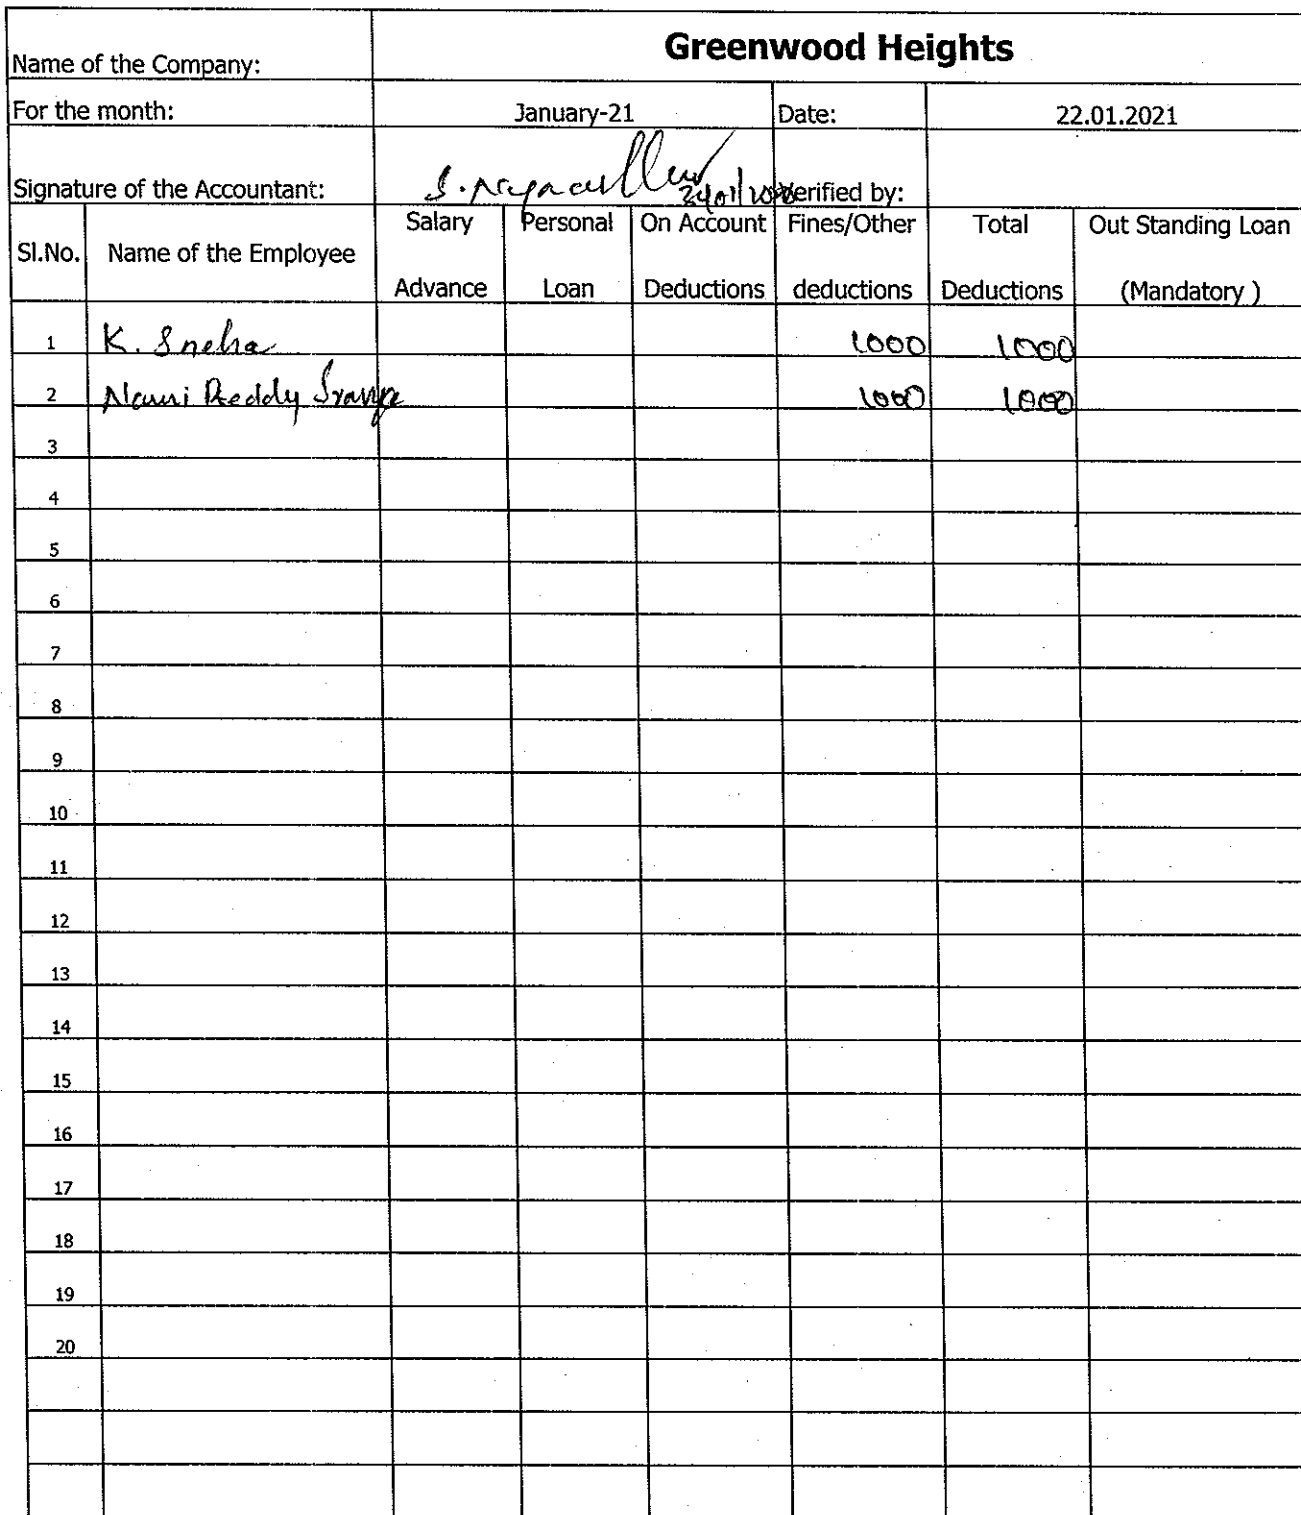 Name of the Company: Greenwood Heights
For the month: January-21 Date: 22.01.2021
Signature of the Accountant: Verified by:
Sl.No. Name of the Employee Salary Advance Personal Loan On Account Deductions Fines/Other deductions Total Deductions Out Standing Loan (Mandatory )
1 K. Sneha 1000 1000
2 Reddy 1000 1000
3
4
5
6
7
8
9
10
11
12
13
14
15
16
17
18
19
20